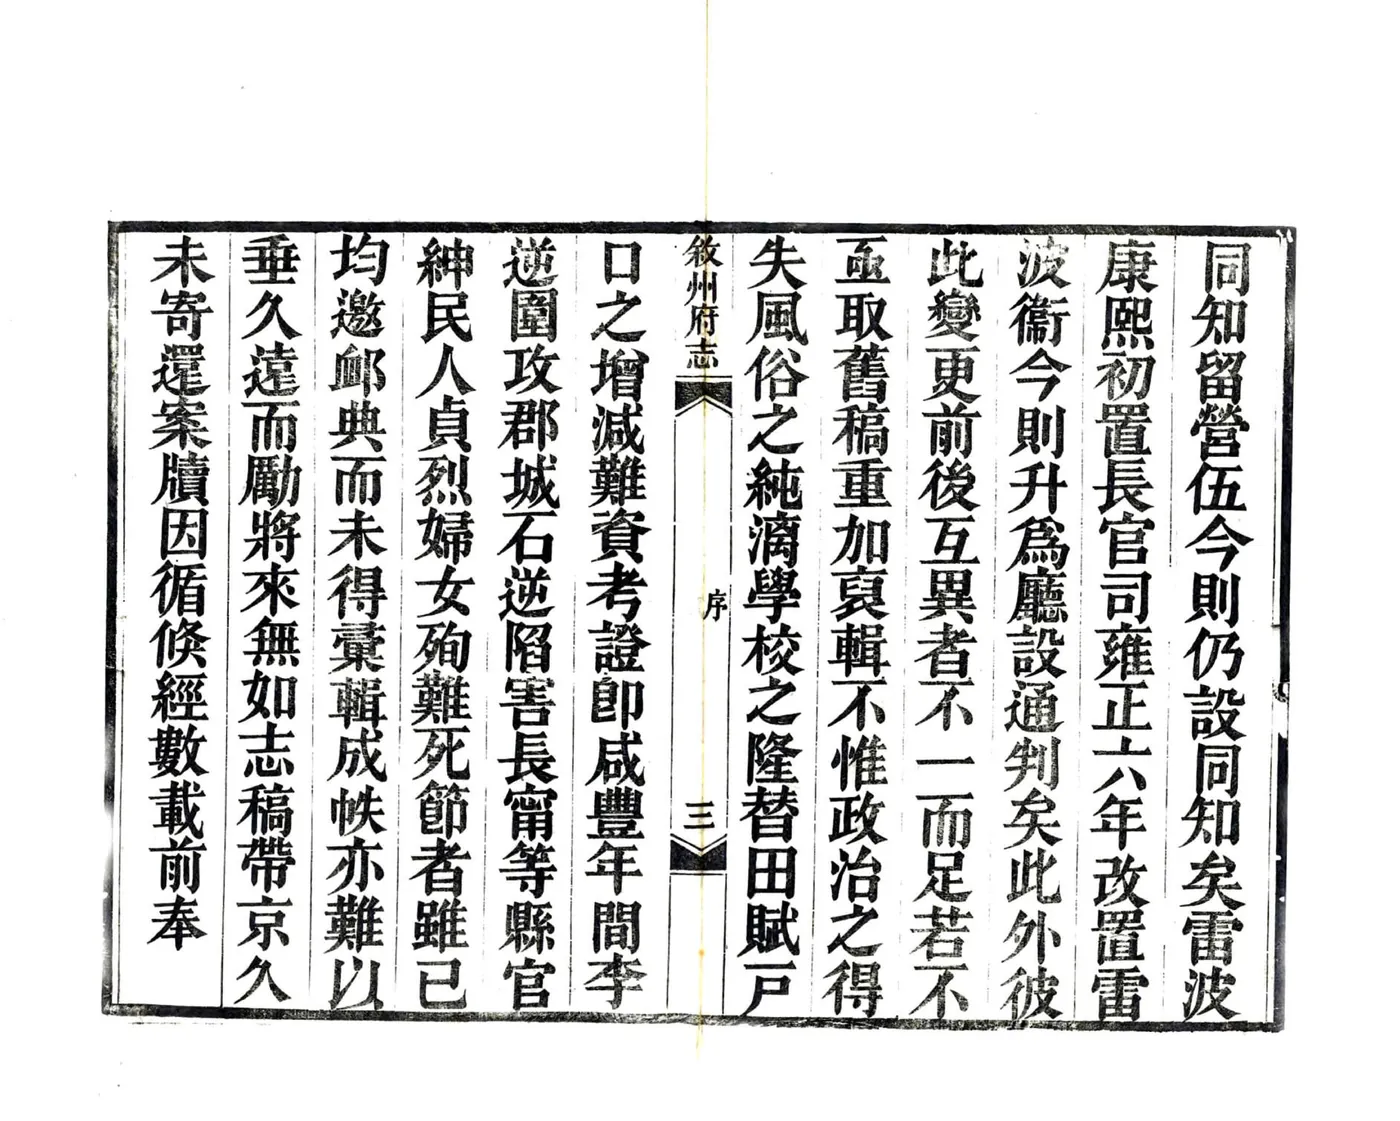 同知留營伍今則仍設同知矣雷波
康熙初置長官司雍正六年改置雷
波衞今則升爲廳設通判矣此外彼
此變更前後互異者不一而足若不
亟取舊稿重加裒輯不惟政治之得
失風俗之純漓學校之隆替田賦戸
敘州府志
序
三
口之增減難資考證卽咸豐年間李
逆圍攻郡城石逆陷害長甯等縣官
紳民人貞烈婦女殉難死節者雖已
均邀䘏典而未得彙輯成帙亦難以
垂久遠而勵將來無如志稿帶京久
未寄還案牘因循倏經數載前奉